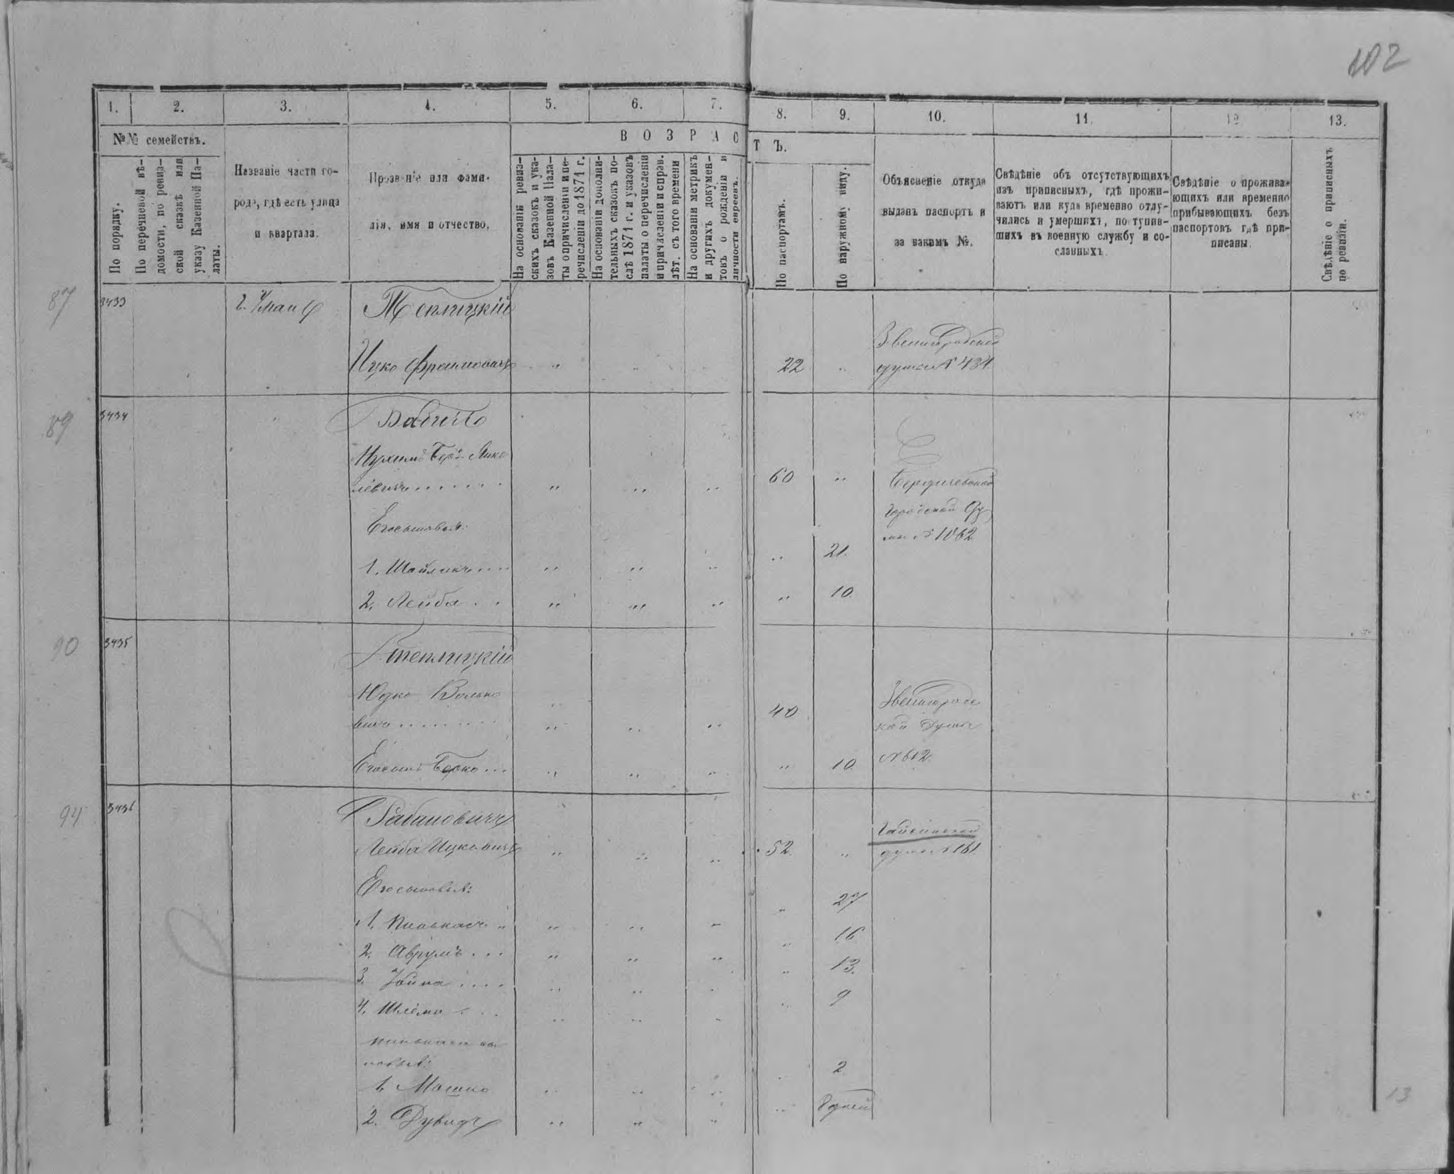 102
1. 2. 3. 4. 5. 6. 7. 8. 9. 10. 11 12 13.
№№ семействъ.
ВОЗРАСТЪ.
По порядку.
По перечневой вѣ-
домости, по ревиз-
ской сказкѣ или
указу Казенной Па-
латы.
Названіе части го-
рода, гдѣ есть улица
и квартала.
Прозваніе или фами-
лія, имя и отчество.
На основаніи ревиз-
скихъ сказокъ и ука-
зовъ Казенной Пала-
ты о причисленіи и пе-
речисленіи до 1871 г.
На основаніи дополни-
тельныхъ сказокъ по-
слѣ 1871 г. и указовъ
палаты о перечисленіи
и причисленіи и справ.
лѣт. съ того времени
На основаніи метрикъ
и другихъ докумен-
товъ о рожденіи и
личности евреевъ.
По паспортамъ.
По наружному виду.
Объясненіе откуда
выданъ паспортъ и
за какимъ №.
Свѣдѣніе объ отсутствующихъ
изъ приписныхъ, гдѣ прожи-
ваютъ или куда временно отлу-
чились и умершихъ, поступив-
шихъ въ военную службу и со-
сланныхъ
Свѣдѣніе о прожива-
ющихъ или временно
прибывающихъ безъ
паспортовъ гдѣ при-
писаны.
Свѣдѣніе о приписныхъ
по ревизіи.
87
3433 г. Умань Теплицкій
Ицко Фроимовичъ 22 Звенигородской
думы № 434
89
3434
Нухимъ Бер
левичъ 60 Бердичевской
Городской Ду
мы № 1062
Его сыновья:
1. 21
2. Лейба 10
90
3435 Теплицкій
Юдко Волько
вичъ 40 Звенигородс
кой Думы
№ 612
Его сынъ Берко 10
94
3436 Рабиновичъ
Лейба Ицковичъ 52. Гайсинской
думы № 161
Его сыновья:
1. Пинхасъ 27
2. Аврумъ 16
3. Іойна 13.
4. Шлема 9
Пинхаса сы
новья:
1. Мошко 2
2. Дувидъ
13